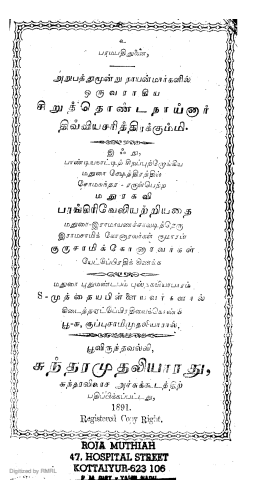 உ
பரமபதிதுணை,
அறுபத்துமூன்று நாயன்மார்களில்
ஒருவராகிய
சிறுத்தொண்டநாய்னார்
திவ்வியசரித்திரக்கும்மி.
இஃது,
பாண்டியநாட்டிற் சிறப்புற்றோங்கிய
மதுரை க்ஷேத்திரத்தின்
சோமசுந்தர - ரருள்பெற்ற
மதுரகவி
பரங்கிரிவேலியற்றியதை
மதுரை-இராமாயணச்சாவடித்தெரு
இராமசாமிக் கோனாரவர்கள் குமாரர்
குருசாமிக்கோனாரவர்கள்
மதுரை புதுமண்டபம் புஸ்தகவியாபாரம்
S-முத்தையபிள்ளையவர்களால்
பூ-சு, குப்புசாமிமுதலியாரால்,
பூவிருந்தவல்லி,
சுந்தரமுதலியாரது,
சுந்தரவிலாச அச்சுக்கூடத்திற்
பதிப்பிக்கப்பட்டது,
1891.
Registered Copy Right.
ROJA MUTHIAH
47, HOSPITAL STREET
KOTTAIYUR-623 106
Digitized by RMRL